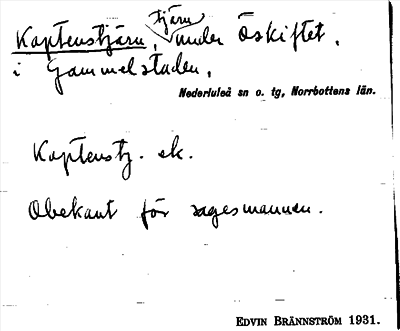 Kaptenstjärn, tjärn under Öskiftet,
i Gammelstaden,
Nederluleå sn o. tg, Norrbottens län.
Kaptenstj. ek.
Obekant för sagesmannen.
EDVIN BRÄNNSTRÖM 1931.